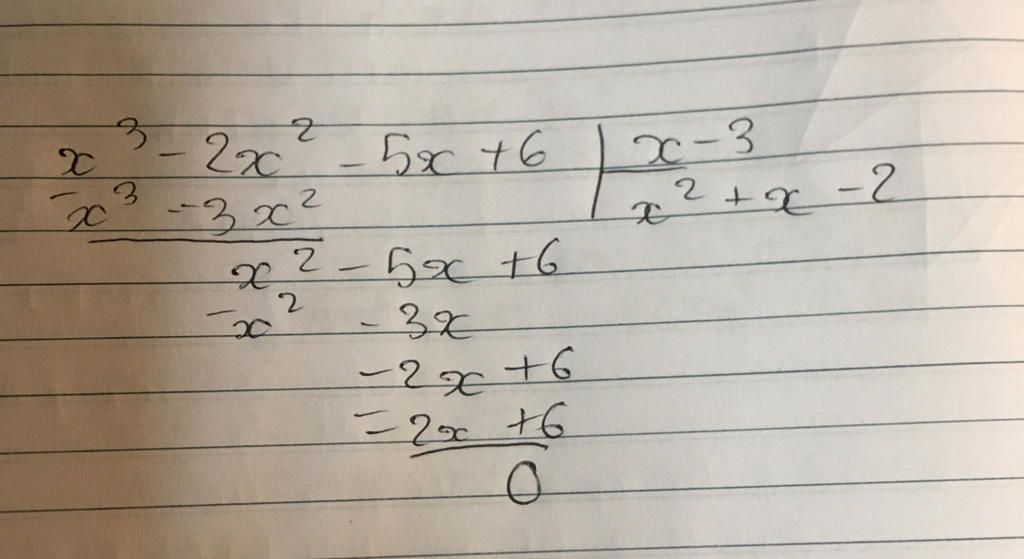 x³ - 2x² - 5x + 6 | x - 3
-x³ - -3x² | x² + x - 2
x² - 5x + 6
-x² - 3x
-2x + 6
= 2x + 6
0